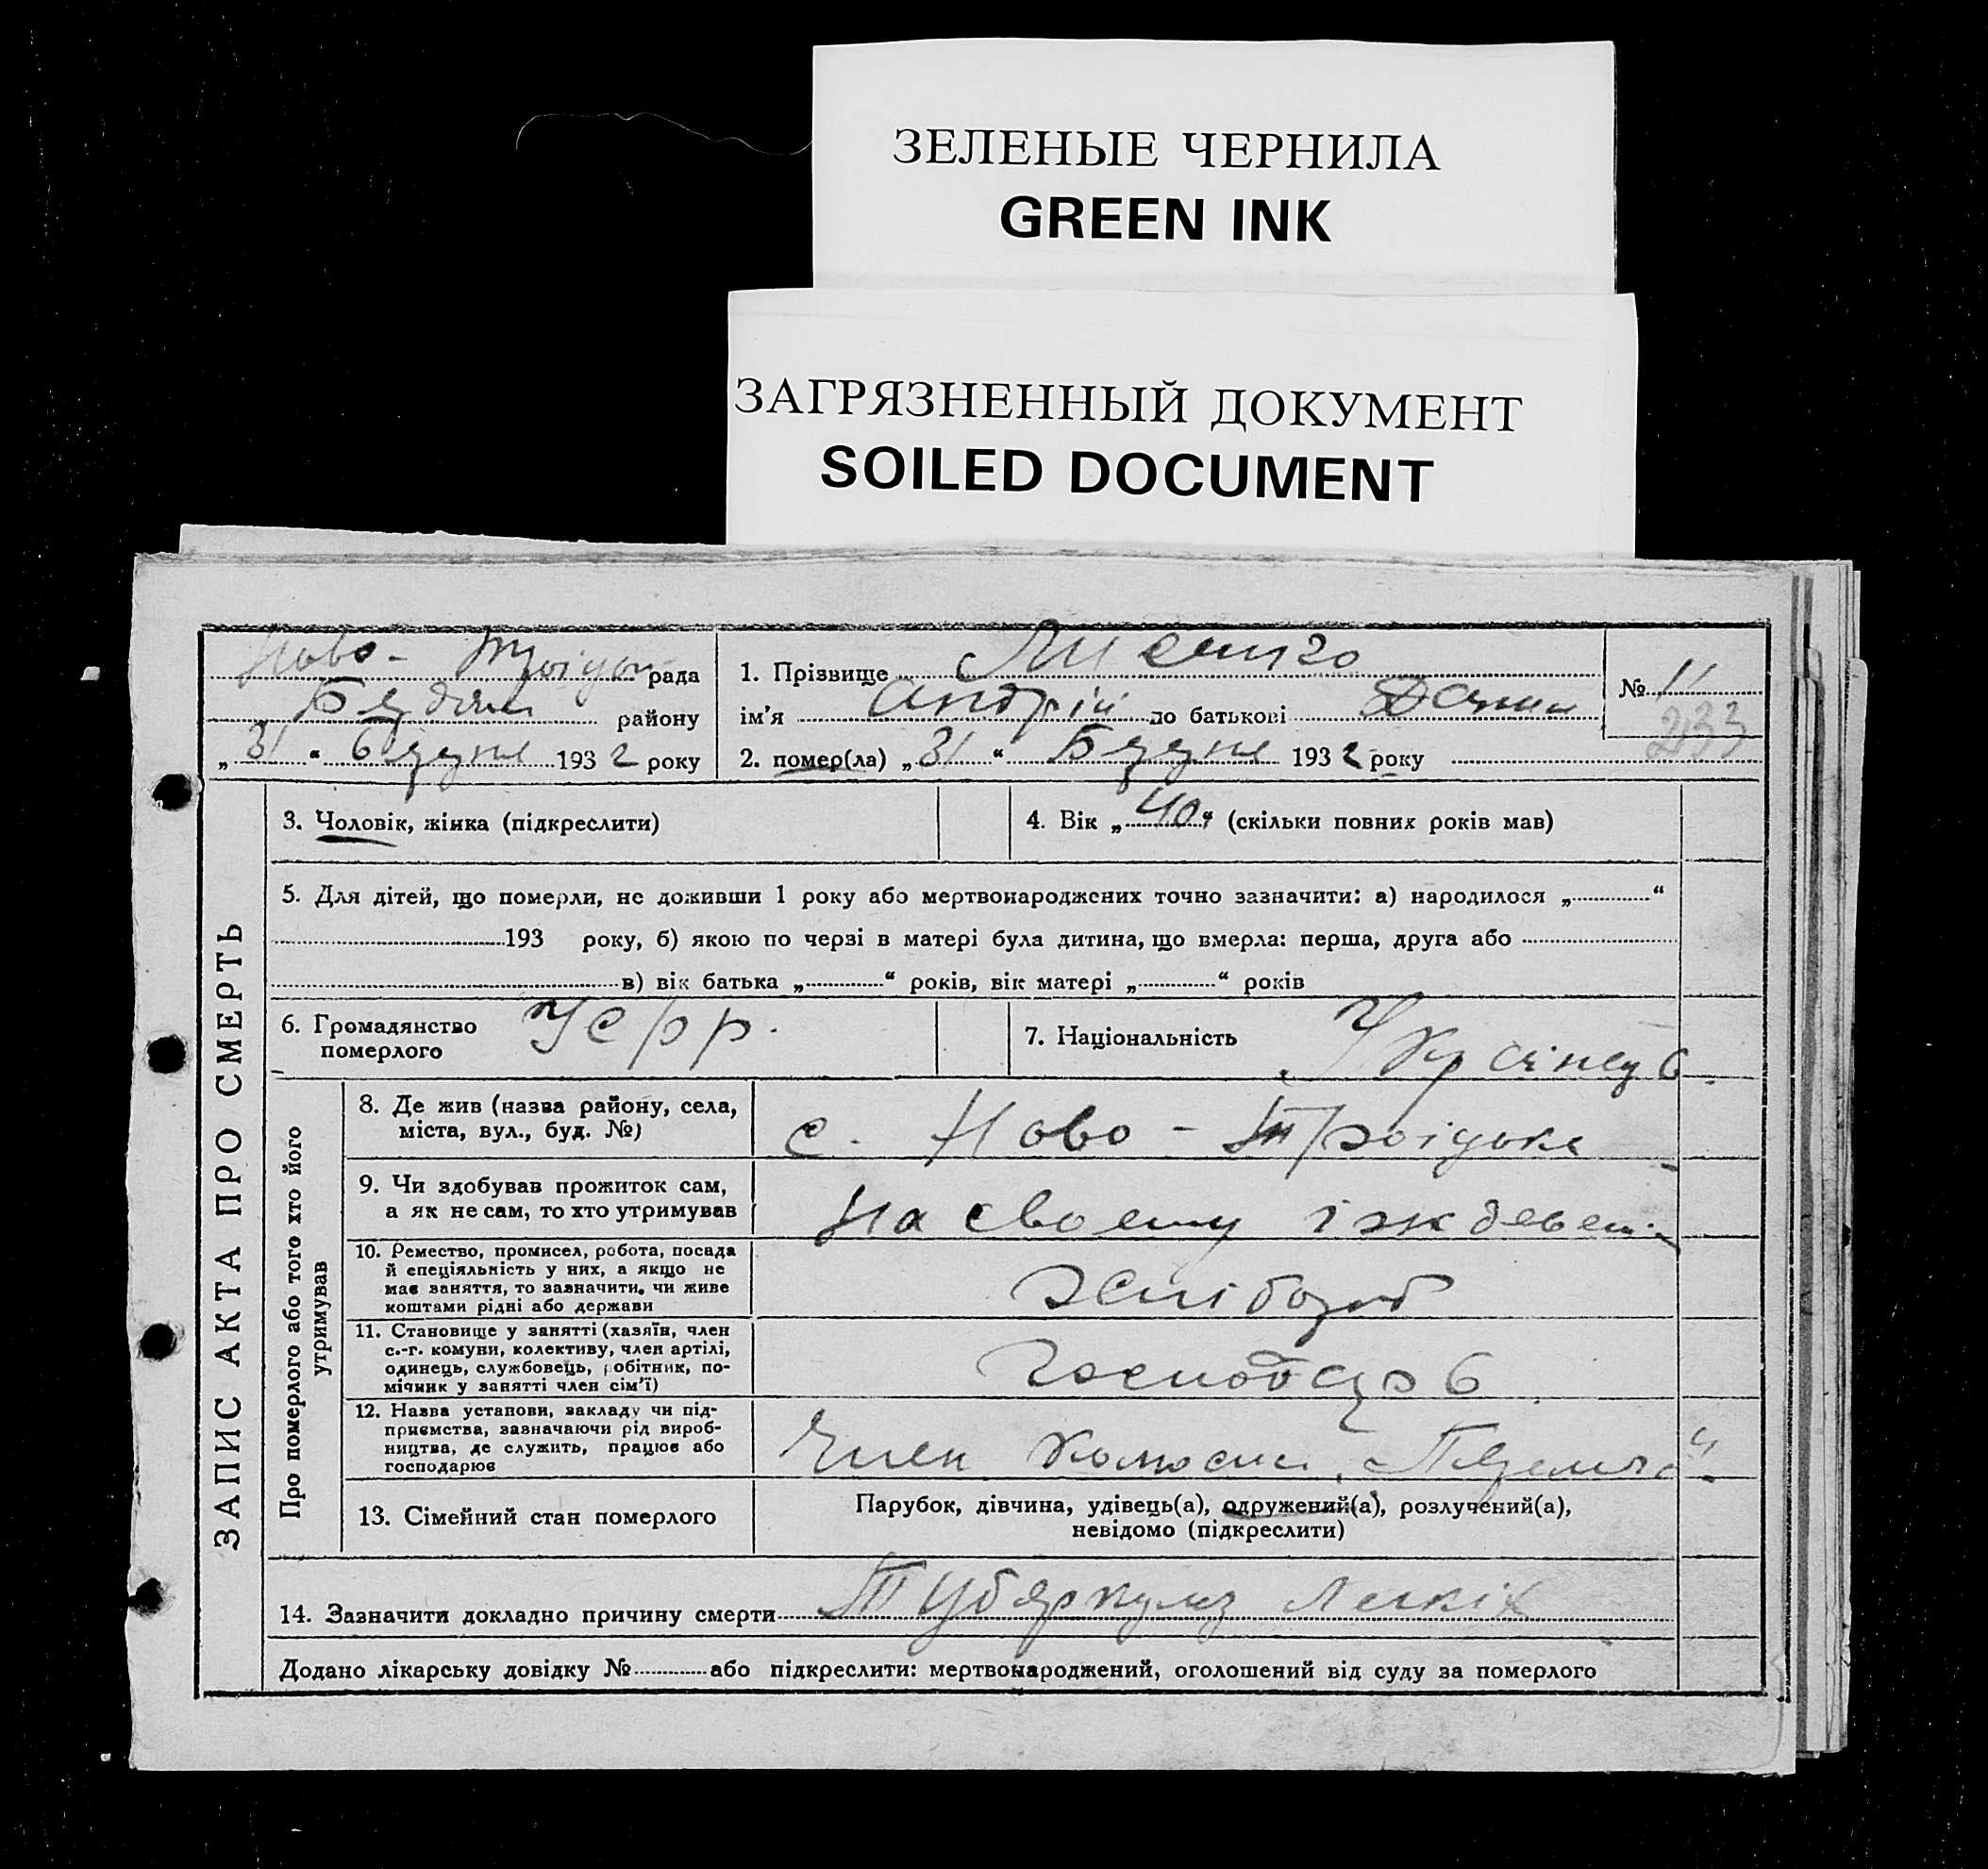 ЗЕЛЕНЫЕ ЧЕРНИЛА
GREEN INK
ЗАГРЯЗНЕННЫЙ ДОКУМЕНТ
SOILED DOCUMENT
Ново- рада
району
„31“ 1932 року
1. Прізвище
ім'я Андрій по батькові
2. помер(ла) „31“ 1932 року
№ 11
233
ЗАПИС АКТА ПРО СМЕРТЬ
3. Чоловік, жінка (підкреслити)
4. Вік „40“ (скільки повних років мав)
5. Для дітей, що померли, не доживши 1 року або мертвонароджених точно зазначити: а) народилося „ “
193 року, б) якою по черзі в матері була дитина, що вмерла: перша, друга або
в) вік батька „ “ років, вік матері „ “ років
6. Громадянство
померлого
Усрр.
7. Національність Українець
Про померлого або того хто його
утримував
8. Де жив (назва району, села,
міста, вул., буд. №)
с. Ново-Троіцьке
9. Чи здобував прожиток сам,
а як не сам, то хто утримував
На своему
10. Ремество, промисел, робота, посада
й спеціяльність у них, а якщо не
має заняття, то зазначити, чи живе
коштами рідні або держави
Хлібороб
11. Становище у занятті (хазяїн, член
с.-г. комуни, колективу, член артілі,
одинець, службовець, робітник, по-
мічник у занятті член сім'ї)
12. Назва установи, закладу чи під-
приємства, зазначаючи рід вироб-
ництва, де служить, працює або
господарює
Член
13. Сімейний стан померлого
Парубок, дівчина, удівець(а), одружений(а), розлучений(а),
невідомо (підкреслити)
14. Зазначити докладно причину смерти Тубяркульз Легкіх
Додано лікарську довідку № або підкреслити: мертвонароджений, оголошений від суду за померлого